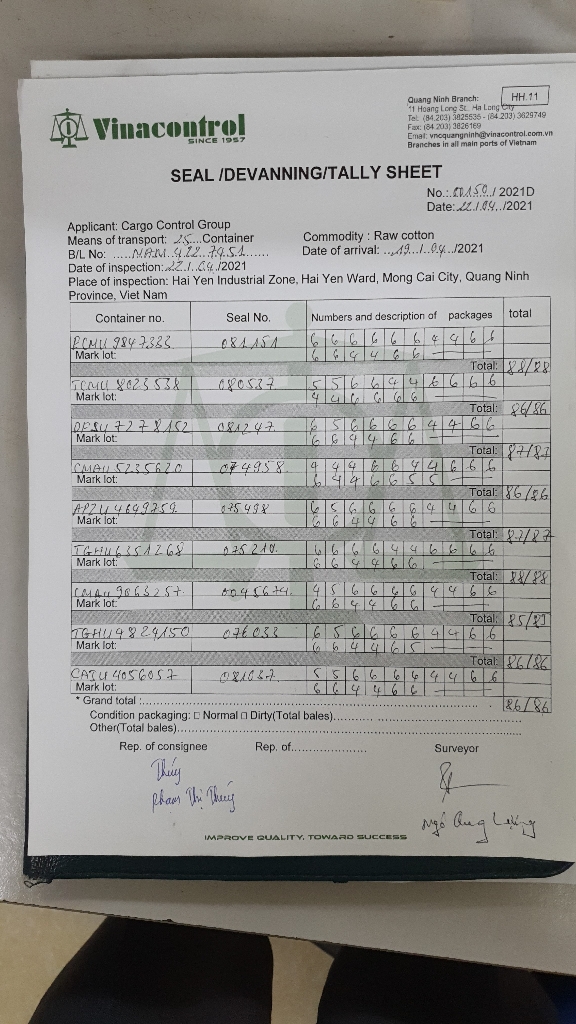 Vinacontrol
SINCE 1957
HH.11
Quang Ninh Branch:
11 Hoang Long St., Ha Long City
Tel: (84.203) 3825535 - (84.203) 3629749
Fax: (84.203) 3826169
Email: vncquangninh@vinacontrol.com.vn
Branches in all main ports of Vietnam
SEAL /DEVANNING/TALLY SHEET
No.: 00150 / 2021D
Date: 22/04/2021
Applicant: Cargo Control Group
Means of transport: 25 Container
Commodity : Raw cotton
B/L No: NAM 422 7951
Date of arrival: 19/04/2021
Date of inspection: 22/04/2021
Place of inspection: Hai Yen Industrial Zone, Hai Yen Ward, Mong Cai City, Quang Ninh
Province, Viet Nam
Container no. Seal No. Numbers and description of packages total
081151 6 6 6 6 6 6 4 4 6 6
Mark lot: 6 6 4 4 6 6
Total: 88/88
TCMU 8023538 080537 5 5 6 6 4 4 6 6 6 6
Mark lot: 4 4 6 6 6 6
Total: 86/86
081247 6 5 6 6 6 6 4 4 6 6
Mark lot: 6 6 4 4 6 6
Total: 87/87
CMAU 5235620 074958 4 4 4 6 6 4 4 6 6 6
Mark lot: 6 4 4 6 6 5 5
Total: 86/86
APZU 4649259 075498 6 5 6 6 6 6 4 4 6 6
Mark lot: 6 6 4 4 6 6
Total: 87/87
TGHU 6351268 075210 6 6 6 6 4 4 6 6 6 6
Mark lot: 6 6 4 4 6 6
Total: 88/88
CMAU 9063257 0045674 4 5 6 6 6 6 4 4 6 6
Mark lot: 6 6 4 4 6 6
Total: 85/85
TGHU 4829150 076033 6 5 6 6 6 6 4 4 6 6
Mark lot: 6 6 4 4 6 5
Total: 86/86
CAIU 4056057 081037 5 5 6 6 6 6 4 4 6 6
Mark lot: 6 6 4 4 6 6
* Grand total : 86/86
Condition packaging: □ Normal □ Dirty(Total bales)
Other(Total bales)
Rep. of consignee Rep. of Surveyor
Thúy
Phạm Thị Thúy
IMPROVE QUALITY, TOWARD SUCCESS